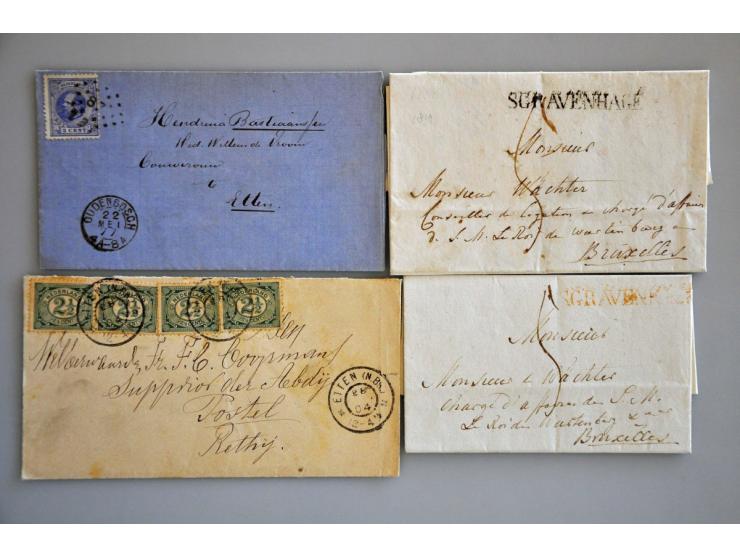 5 CENT
Hendrina Bastiaansse
Wed. Willem de Vroom
Bouwvrouw
te
Etten
OUDENBOSCH
22
MEI
77
4A-8A
SGRAVENHAGE
Monsieur
Monsieur Wächter
Conseiller de légation & chargé d'affaires
de S. M. Le Roi de
Bruxelles
2½ 2½ 2½ 2½
Den
Weleerwaarde Fr. F. C.
der Abdij
Postel
Rethij
ETTEN (N.BR.)
04
12-4N
SGRAVENHAGE
Monsieur
Monsieur de Wächter
Chargé d'affaires de S. M.
Le Roi de
Bruxelles